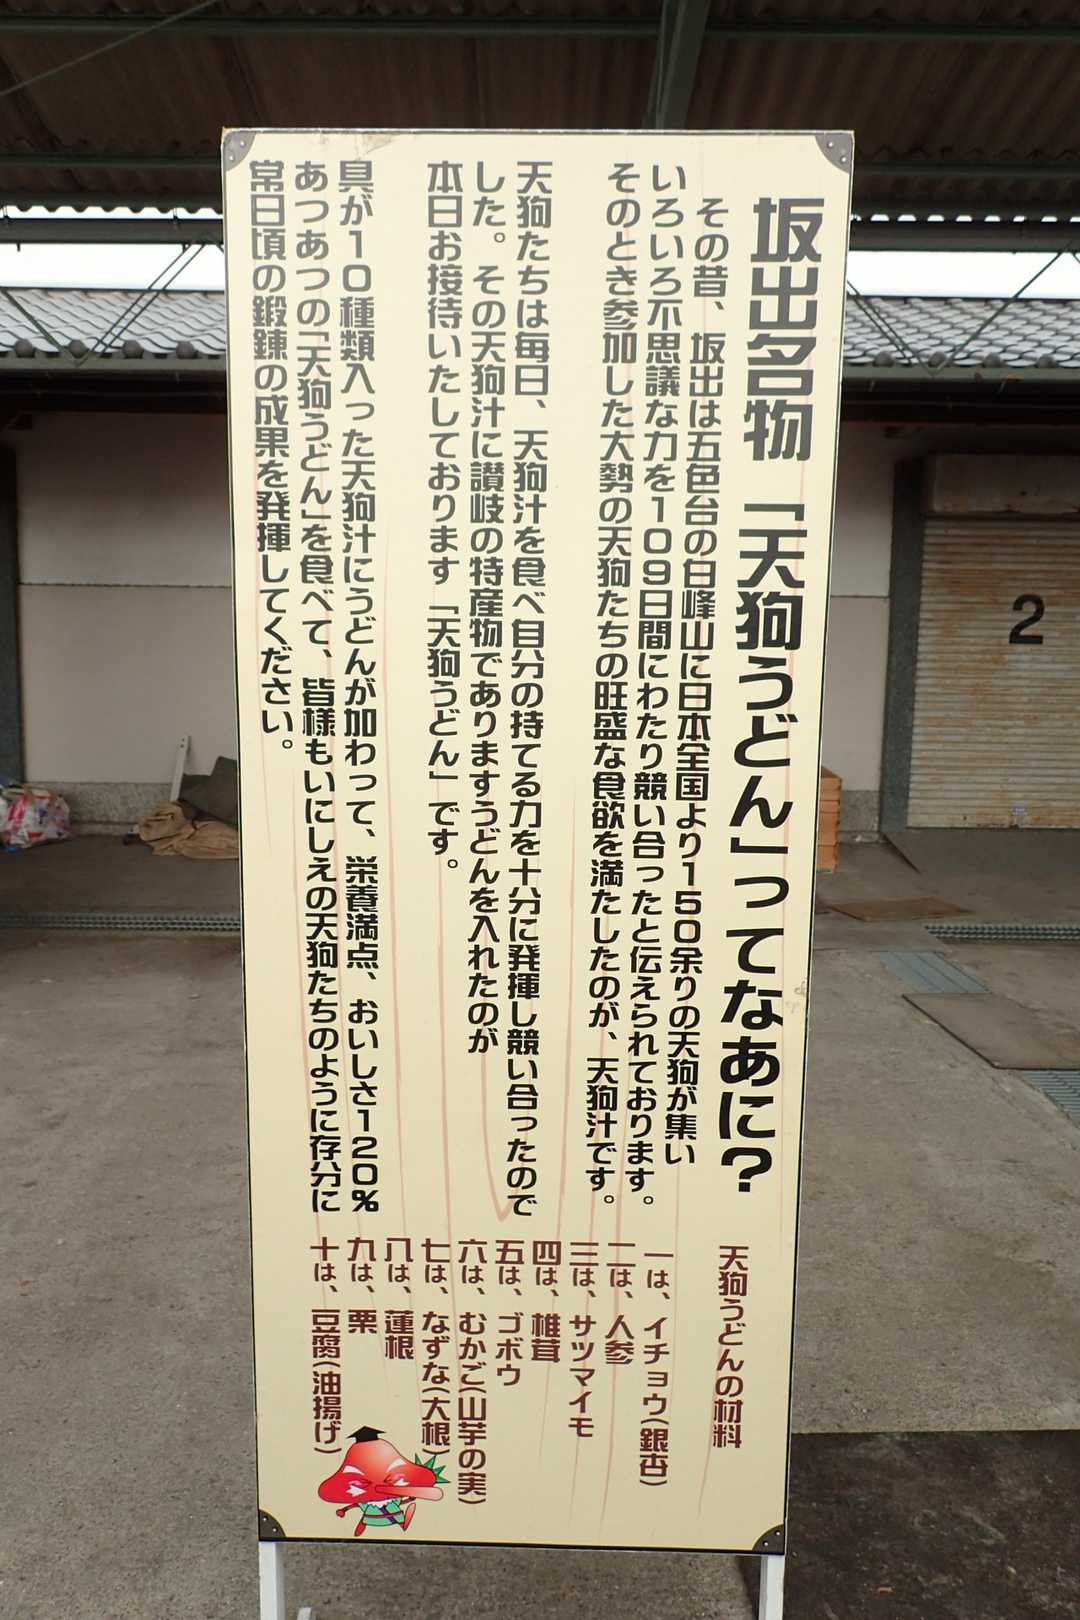 坂出名物「天狗うどん」ってなあに？
その昔、坂出は五色台の白峰山に日本全国より150余りの天狗が集い
いろいろ不思議な力を109日間にわたり競い合ったと伝えられております。
そのとき参加した大勢の天狗たちの旺盛な食欲を満たしたのが、天狗汁です。
天狗たちは毎日、天狗汁を食べ自分の持てる力を十分に発揮し競い合ったので
した。その天狗汁に讃岐の特産物でありますうどんを入れたのが
本日お接待いたしております「天狗うどん」です。
具が10種類入った天狗汁にうどんが加わって、栄養満点、おいしさ120%
あつあつの「天狗うどん」を食べて、皆様もいにしえの天狗たちのように存分に
常日頃の鍛錬の成果を発揮してください。
天狗うどんの材料
一は、イチョウ(銀杏)
二は、人参
三は、サツマイモ
四は、椎茸
五は、ゴボウ
六は、むかご(山芋の実)
七は、なずな(大根)
八は、蓮根
九は、栗
十は、豆腐(油揚げ)
2